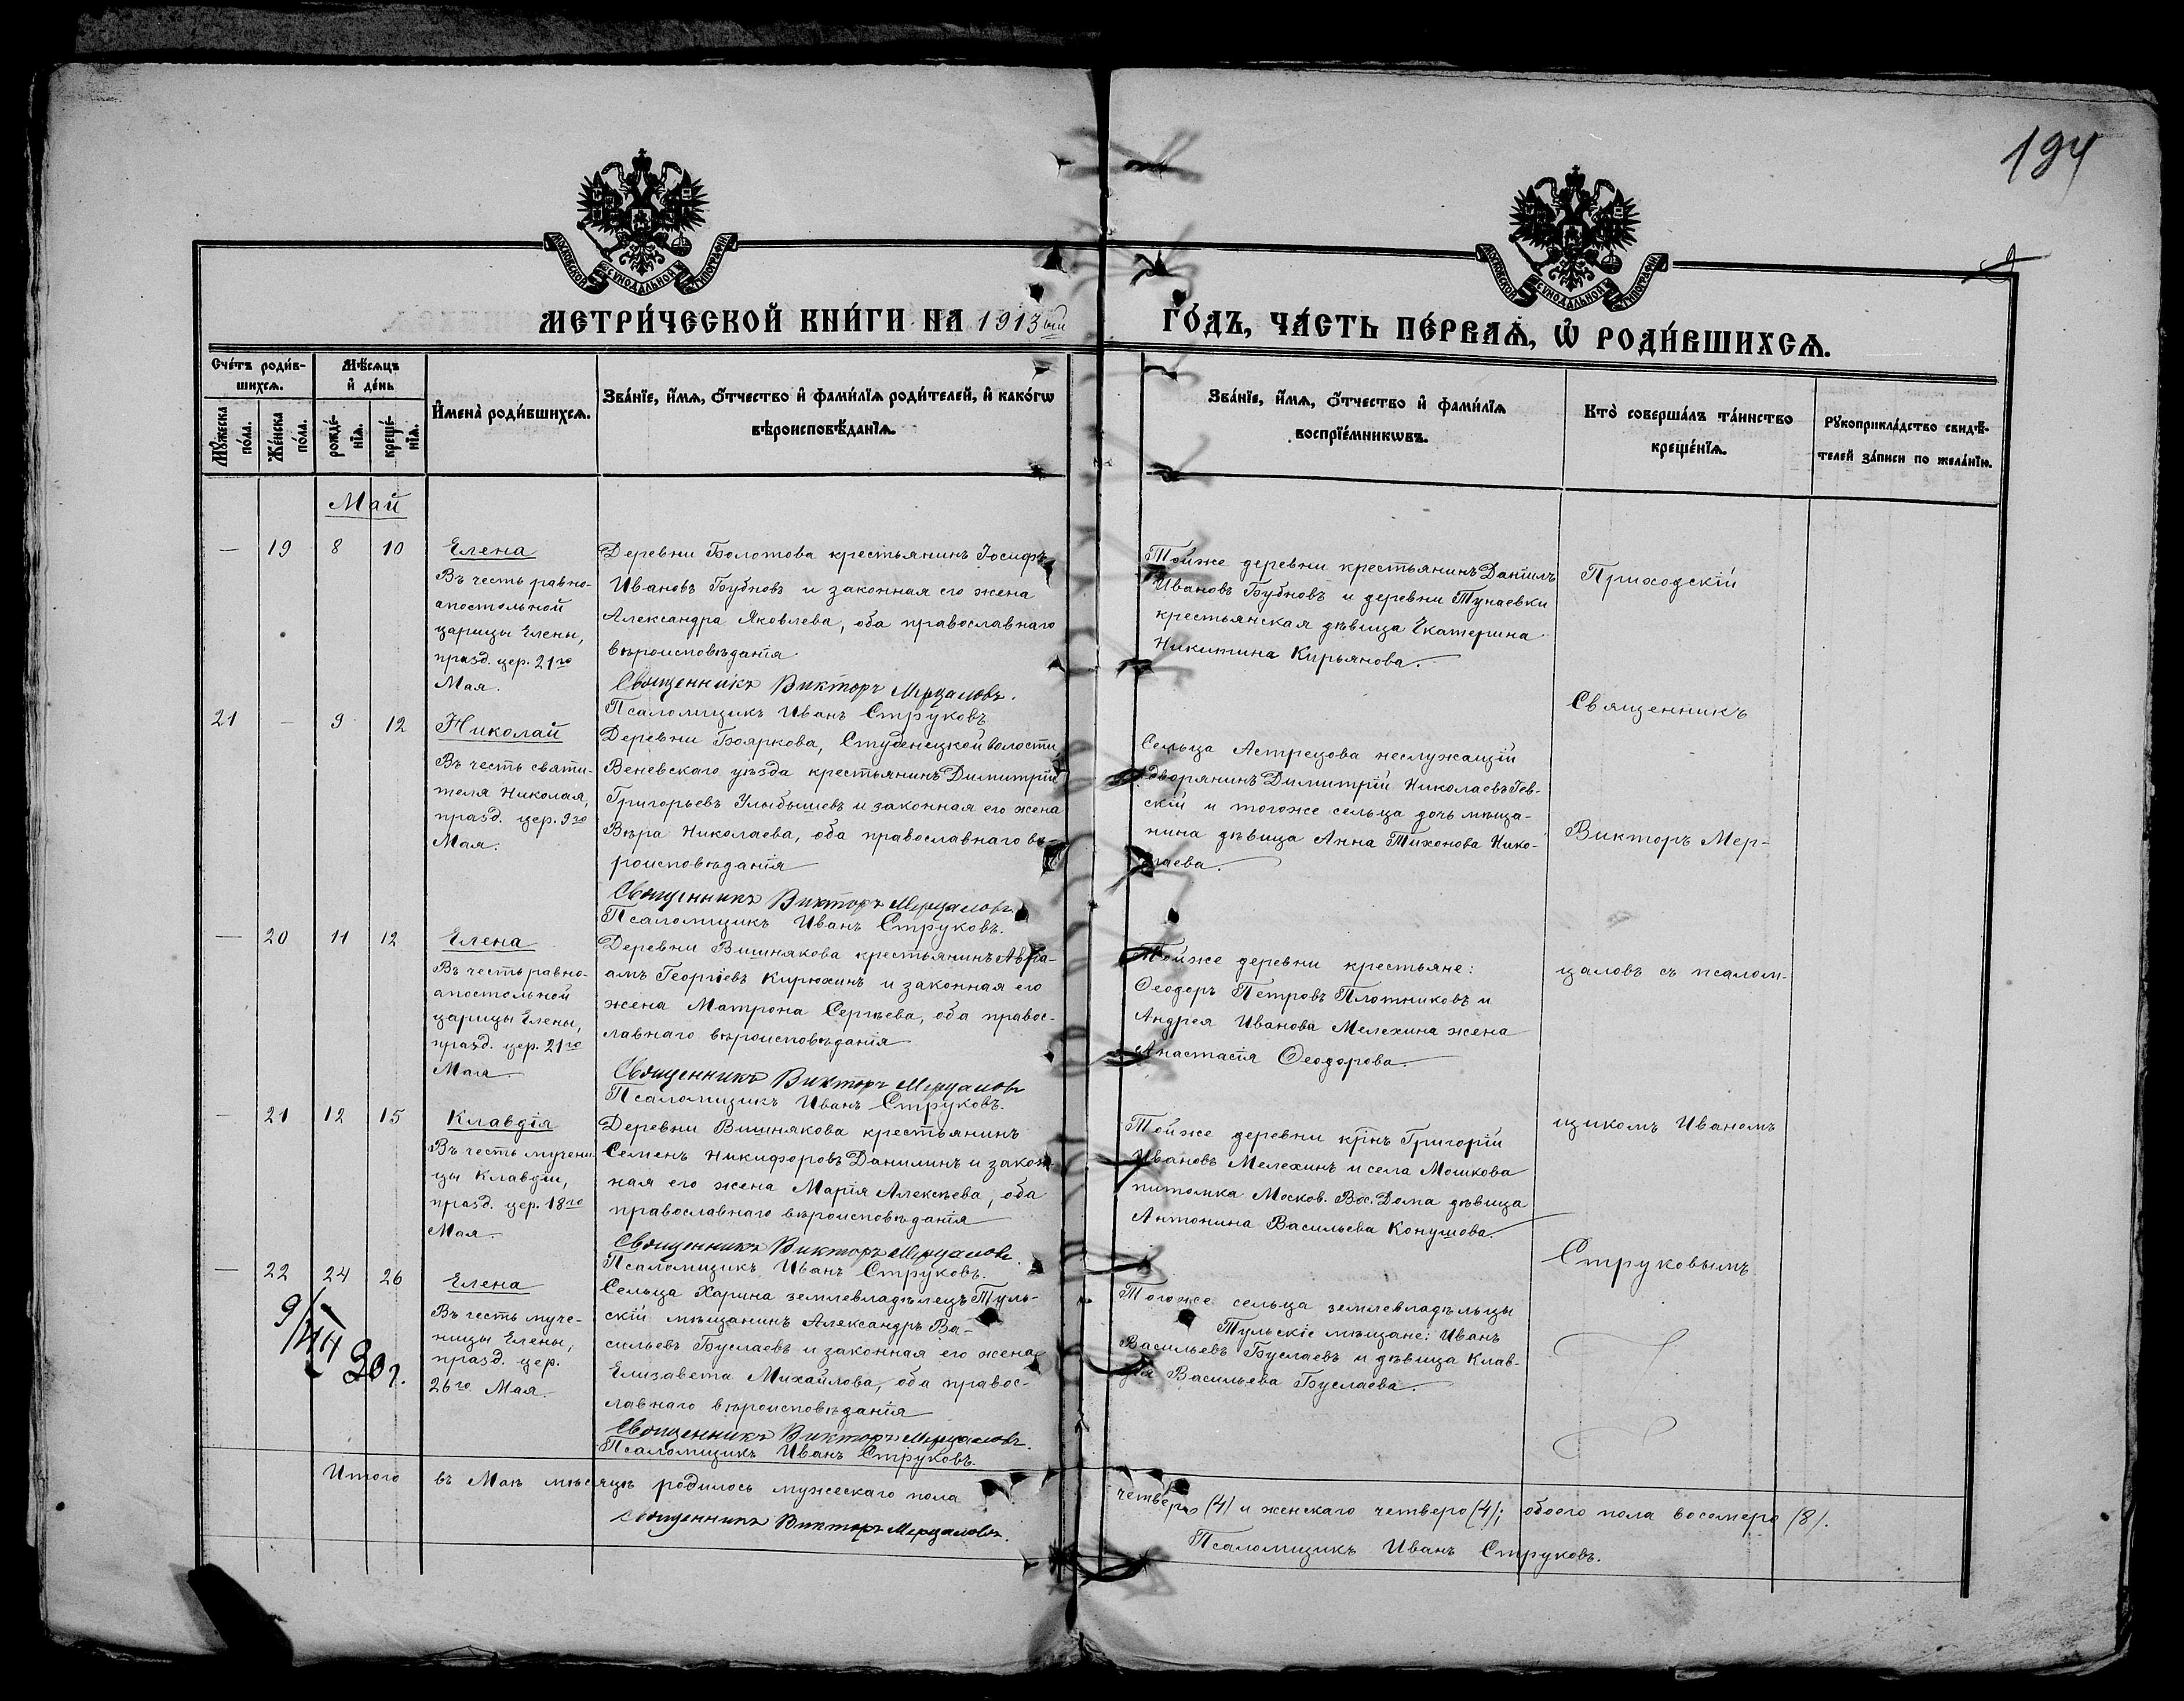 194
МОСКОВСКОЙ СѴНОДАЛЬНОЙ ТИПОГРАФІИ
МОСКОВСКОЙ СѴНОДАЛЬНОЙ ТИПОГРАФІИ
МЕТРИ́ЧЕСКОЙ КНИ́ГИ НА 1913ый
ГО́ДЪ, ЧА́СТЬ ПЕ́РВАѦ, Ѽ РОДИ́ВШИХСѦ.
Сче́тъ роди́в-
шихсѧ.
Мѣ́сѧцъ
и҆ де́нь
Мꙋ́жеска
по́ла.
Же́нска
по́ла.
рожде́-
нїѧ.
креще́-
нїѧ.
И҆мена̀ роди́вшихсѧ.
Зва́нїе, и҆́мѧ, ѻ҆́тчество и҆ фами́лїѧ роди́телей, и҆ како́гѡ
вѣроисповѣ́данїѧ.
Зва́нїе, и҆́мѧ, ѻ҆́тчество и҆ фами́лїѧ
воспрїе́мникѡвъ.
Кто̀ соверша́лъ та́инство
креще́нїѧ.
Рꙋкоприкла́дство свидѣ́-
телей за́писи по жела́нїю.
Май
— 19 8 10
Елена
Въ честь равно-
апостольной
царицы Елены,
празд. цер. 21го
Мая.
Деревни Болотова крестьянинъ Іосифъ
Ивановъ Бубновъ и законная его жена
Александра Яковлева, оба православнаго
вѣроисповѣданія
Священникъ Викторъ Мерцаловъ.
Псаломщикъ Иванъ Струковъ
Тойже деревни крестьянинъ Даніилъ
Ивановъ Бубновъ и деревни Тунаевки
крестьянская дѣвица Екатерина
Никитина Кирьянова.
Приходскій
21 — 9 12
Николай
Въ честь святи-
теля Николая,
празд. цер. 9го
Мая.
Деревни Бояркова, Студенецкой волости,
Веневского уѣзда крестьянинъ Димитрій
Григорьевъ Улыбышевъ и законная его жена
Вѣра Николаева, оба православнаго вѣ-
роисповѣданія
Священникъ Викторъ Мерцаловъ
Псаломщикъ Иванъ Струковъ.
Сельца Астрецова неслужащій
дворянинъ Димитрій Николаевъ Гев-
скій и тогоже сельца дочь мѣща-
нина дѣвица Анна Тихонова Нико-
лаева.
Священникъ
Викторъ Мер-
— 20 11 12
Елена
Въ честь равно-
апостольной
царицы Елены,
празд. цер. 21го
Мая
Деревни Вишнякова крестьянинъ Авра-
амъ Георгіевъ Кирюхинъ и законная его
жена Матрона Сергѣева, оба правос-
лавнаго вѣроисповѣданія
Священникъ Викторъ Мерцаловъ
Псаломщикъ Иванъ Струковъ.
Тойже деревни крестьяне:
Ѳеодоръ Петровъ Плотниковъ и
Андрея Иванова Мелехина жена
Анастасія Ѳеодорова.
цаловъ съ псалом-
— 21 12 15
Клавдія
Въ честь мучени-
цы Клавдіи,
празд. цер. 18го
Мая.
Деревни Вишнякова крестьянинъ
Семенъ Никифоровъ Данилинъ и закон-
ная его жена Марія Алексѣева, оба
православнаго вѣроисповѣданія
Священникъ Викторъ Мерцаловъ.
Псаломщикъ Иванъ Струковъ.
Тойже деревни крінъ Григорій
Ивановъ Мелехинъ и села Мошкова
питомка Москов. Вос. Дома дѣвица
Антонина Васильева Конушова.
щикомъ Иваномъ
— 22 24 26
Елена
Въ честь муче-
ницы Елены,
празд. цер.
26го Мая.
Сельца Харина землевладѣлецъ Туль-
скій мѣщанинъ Александръ Ва-
сильевъ Буслаевъ и законная его жена
Елизавета Михайлова, оба правос-
лавнаго вѣроисповѣданія
Священникъ Викторъ Мерцаловъ.
Псаломщикъ Иванъ Струковъ.
Тогоже сельца землевладѣльцы
Тульскіе мѣщане: Иванъ
Васильевъ Буслаевъ и дѣвица Клав-
дія Васильева Буслаева.
Струковымъ
Итого въ Маѣ мѣсяцѣ родилось мужескаго пола
четверо (4) и женскаго четверо (4); обоего пола восемеро (8).
Священникъ Викторъ Мерцаловъ.
Псаломщикъ Иванъ Струковъ.